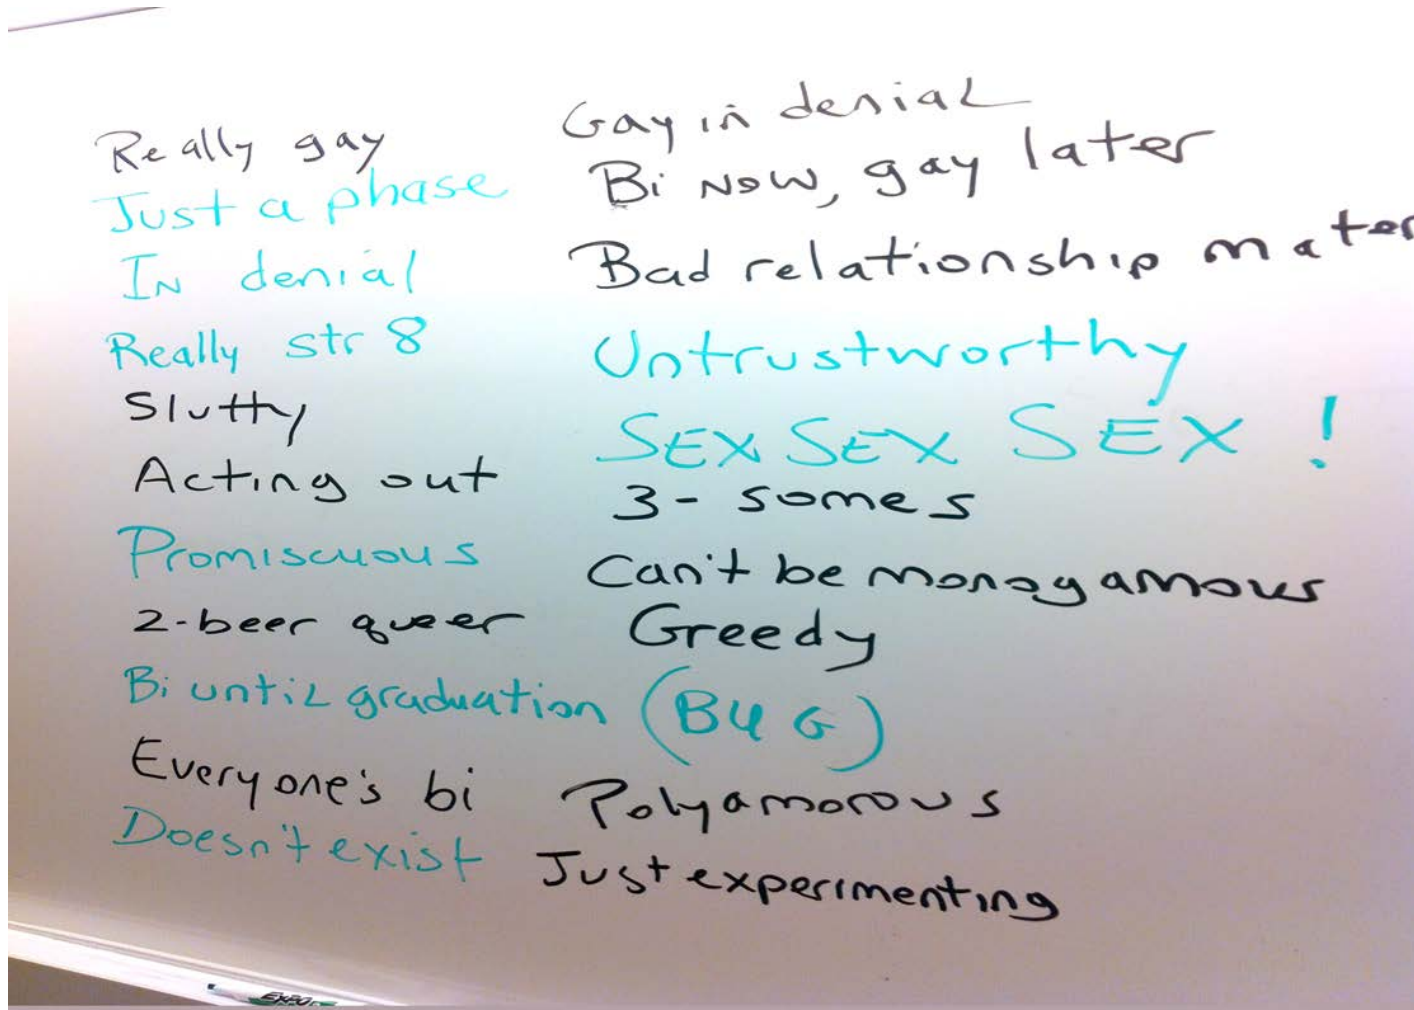 Really gay
Just a phase
In denial
Really str 8
Slutty
Acting out
Promiscuous
2-beer queer
Bi until graduation (BUG)
Everyone's bi
Doesn't exist
Gay in denial
Bi now, gay later
Bad relationship mater
Untrustworthy
SEX SEX SEX !
3-somes
Can't be monogamous
Greedy
Polyamorous
Just experimenting
EXPO